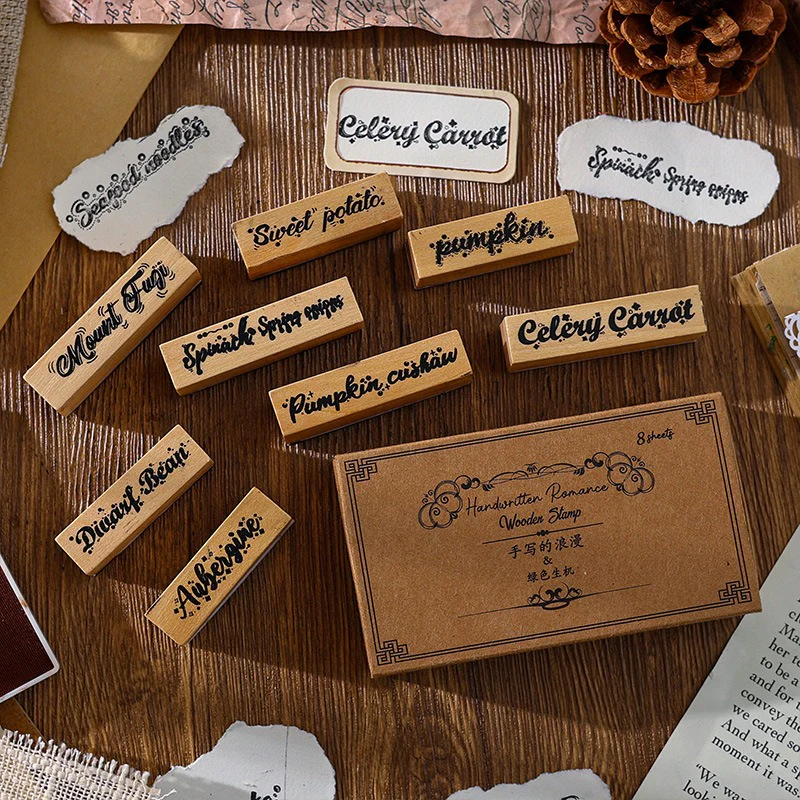 Seafood noodles
Celery Carrot
Spinach Spring onions
Sweet potato
pumpkin
Mount Fuji
Spinach Spring onions
Celery Carrot
Pumpkin cushaw
Dwarf Bean
Aubergine
8 sheets
Handwritten Romance
Wooden Stamp
手写的浪漫
&
绿色生机
her
to be a
and for t
convey the
we cared so
And what a s
moment it was.
"We wa
look